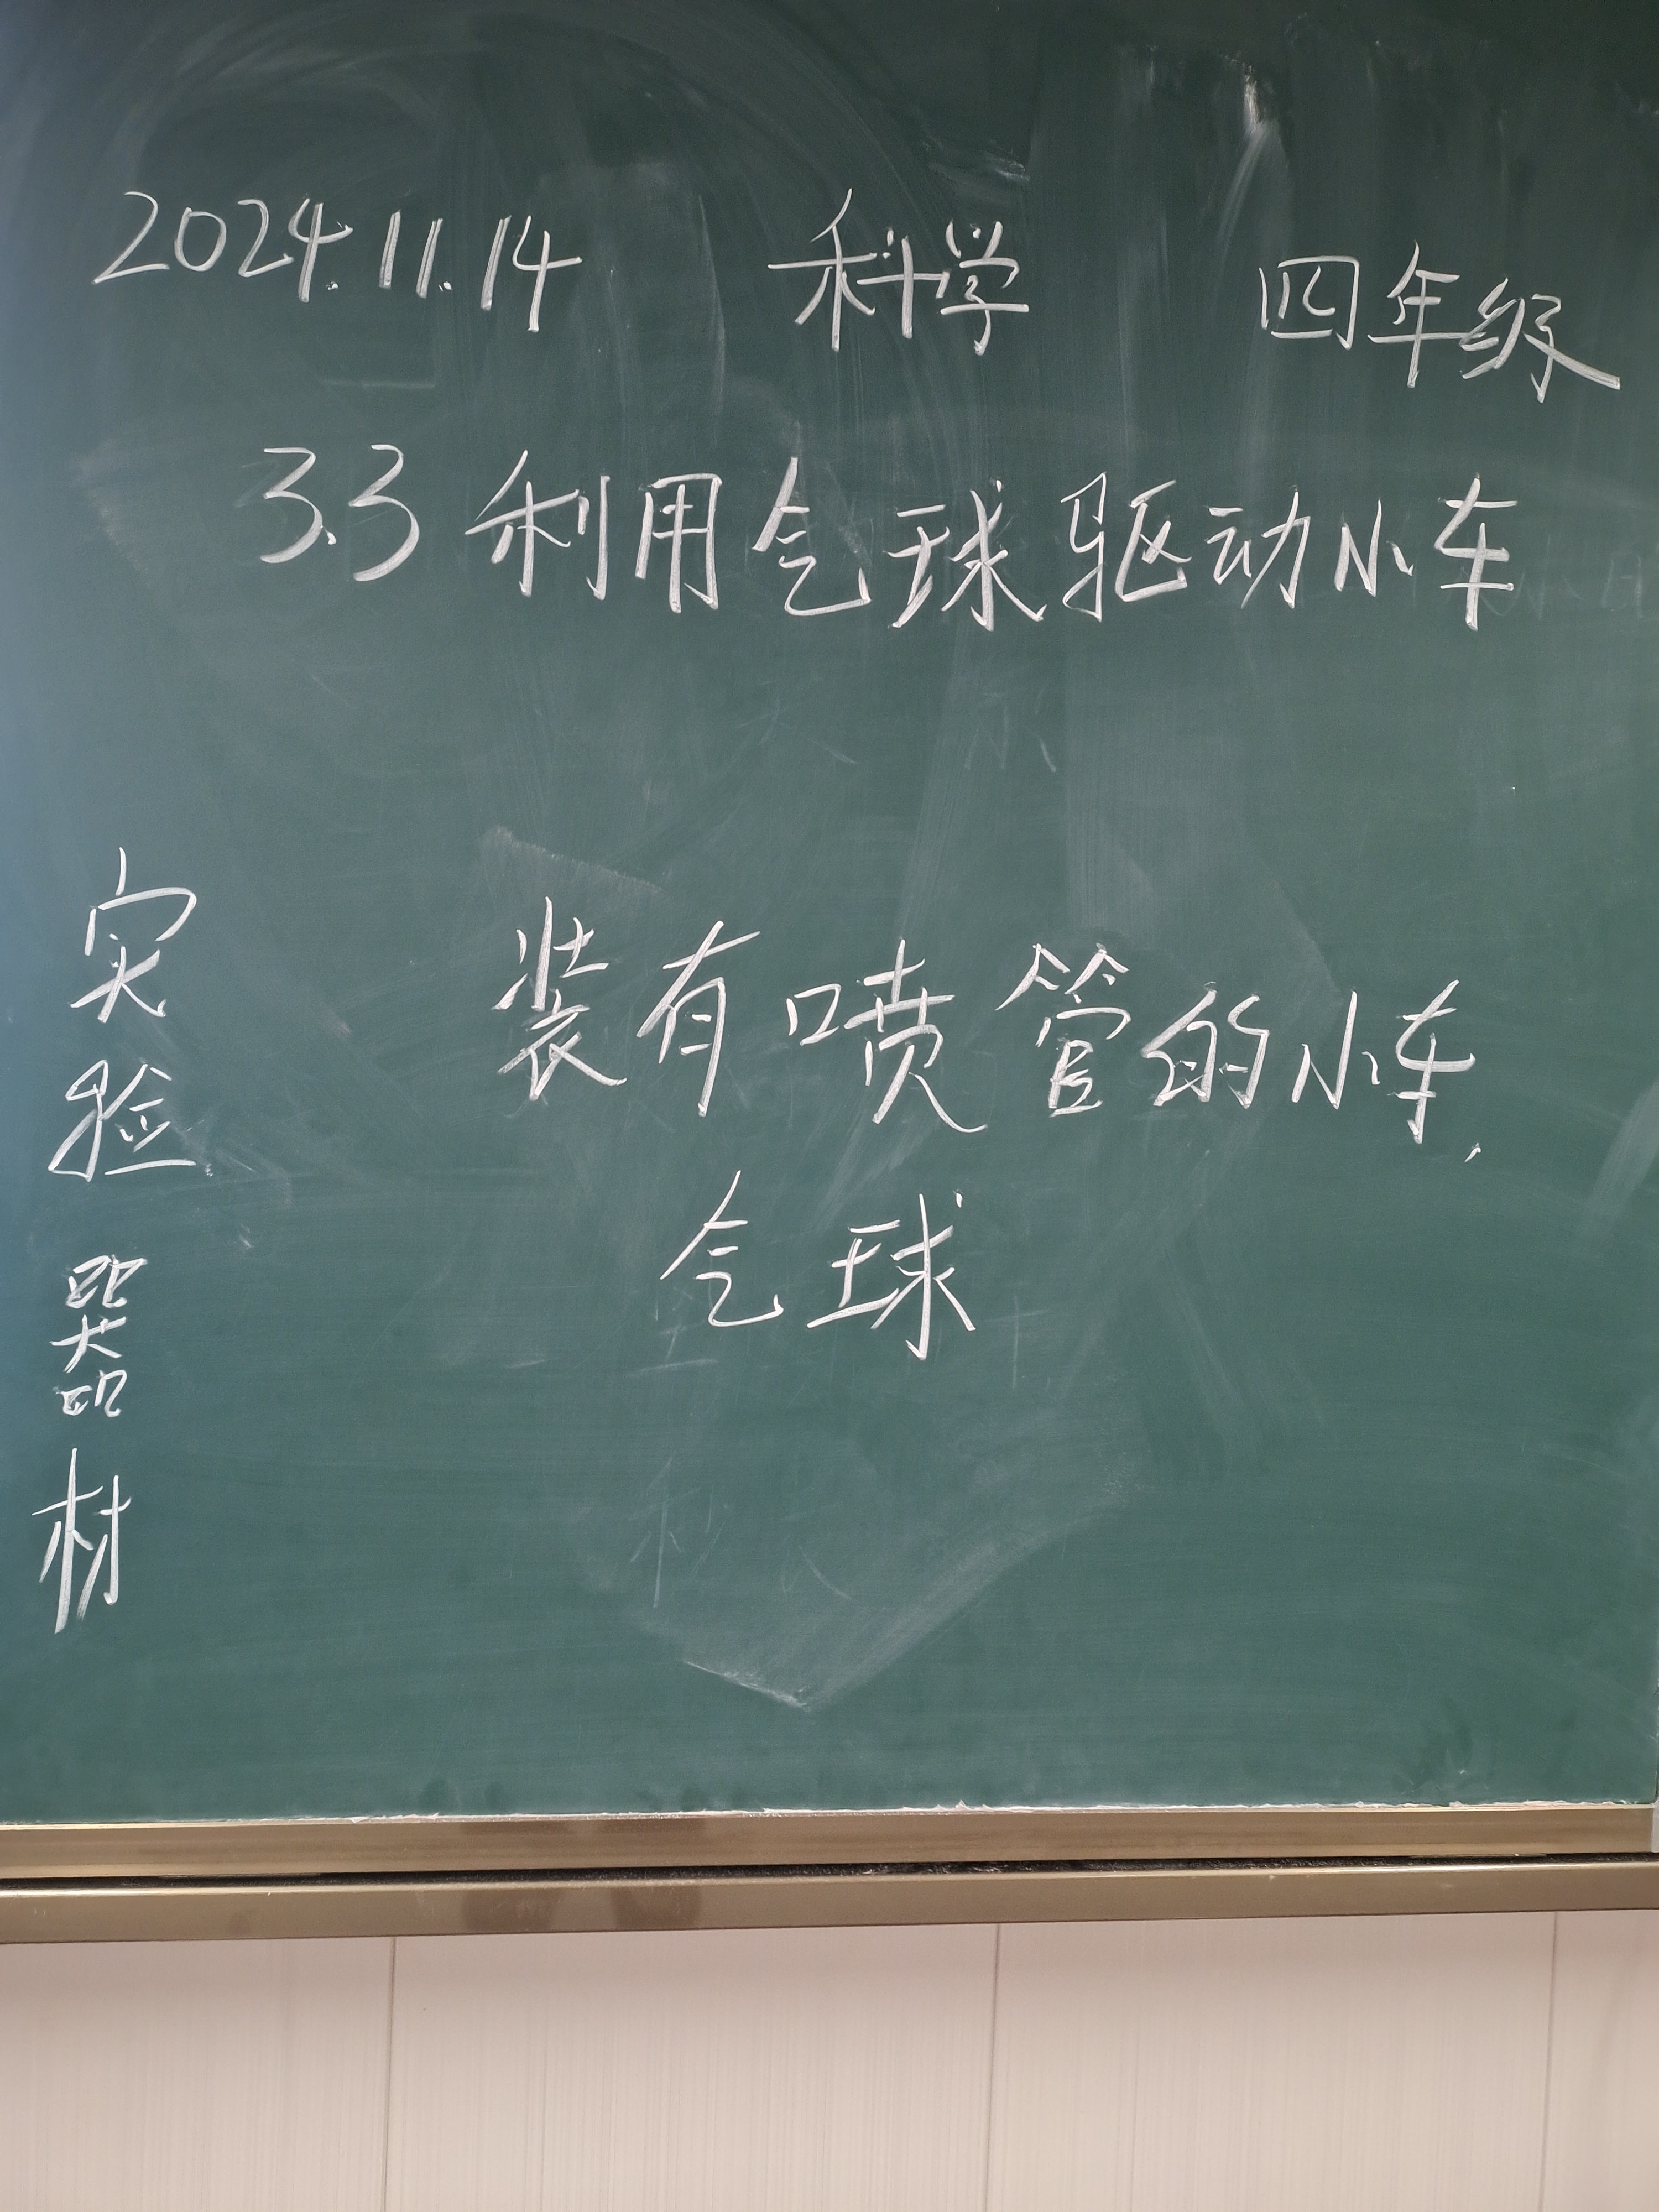 2024.11.14 科学 四年级
3.3 利用气球驱动小车
实验器材
装有喷管的小车、
气球